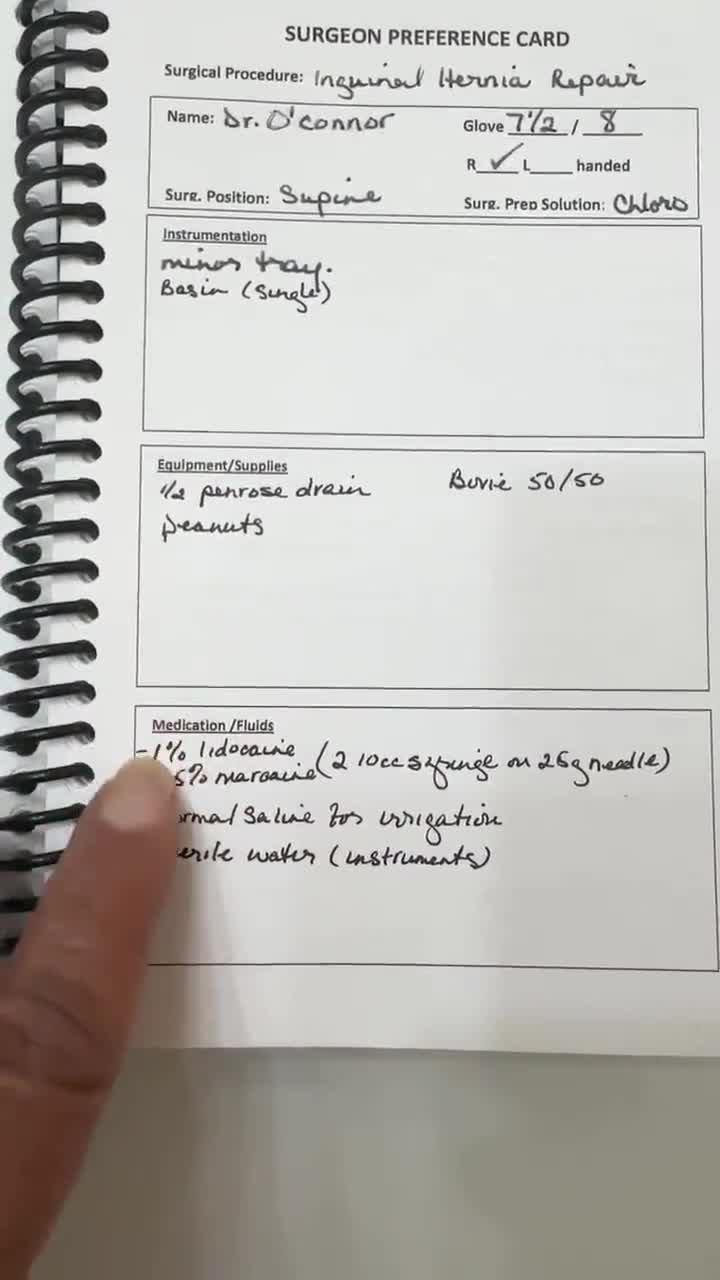 SURGEON PREFERENCE CARD
Surgical Procedure: Inguinal Hernia Repair
Name: Dr. O'connor
Glove 7 1/2 / 8
R ✓ L____ handed
Surg. Position: Supine
Surg. Prep Solution: Chloro
Instrumentation
minor tray.
Basin (Single)
Equipment/Supplies
1/2 penrose drain
Bovie 50/50
peanuts
Medication /Fluids
-1% lidocaine
5% marcaine (2 10cc syringe on 25g needle)
ormal Saline for irrigation
erile water (instruments)